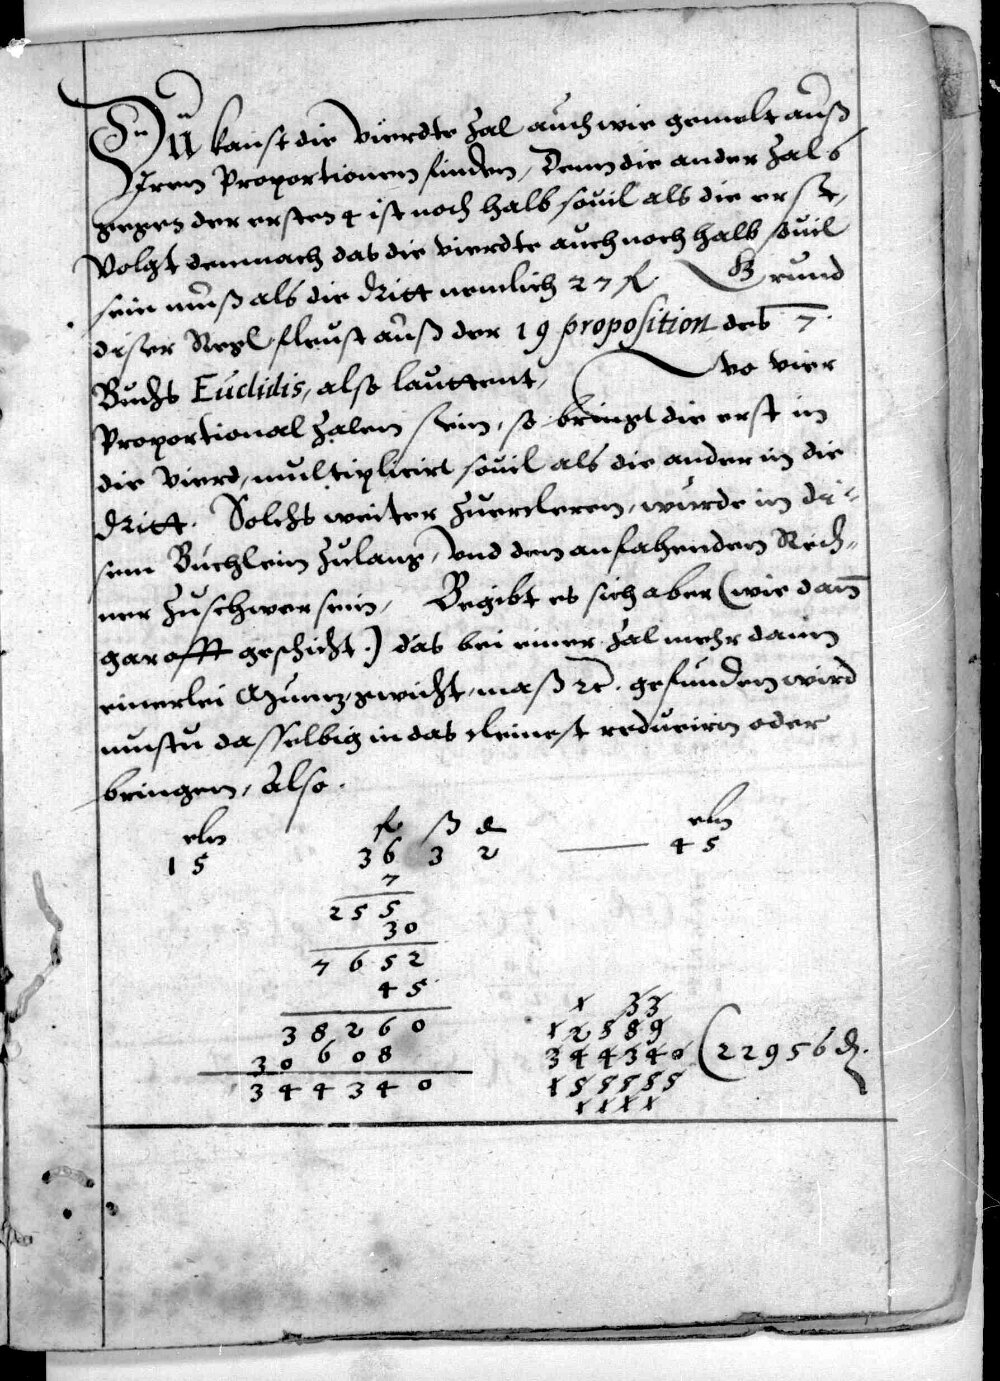 Du kanst die vierdte Zal auch wie gemelt auß
Iren Proportionen finden, Denn die ander Zal 6
gegen der ersten 4 ist noch halb souil als die erste,
Volgt demnach das die vierdte auch noch halb souil
sein muß als die dritt nemlich 27 fl. Grund
diser Regl fleust auß der 19 proposition des 7.
Buchs Euclidis, also lauttent, Wo vier
Proportional Zalen sein, so bringt die erst in
die Vierd, multiplicirt souil als die ander in die
dritt. Solchs weiter Zuercleren, wurde in di-
sem Buchlein Zulang, vnd den anfahenden Rech-
ner Zuschwer sein, Begibt es sich aber (wie dann
gar offt geschicht.) das bei einer Zal mehr dann
einerlei Muntz, gwicht, maß ec. gefunden wird
mustu dasselbig in das cleinest reducirn oder
bringen, Also.
eln fl ß d eln
15 36 3 2 —— 45
7
255
30
7652
45
38260
30608
344340
1 33
12889
344340 (22956 d.
155555
1111